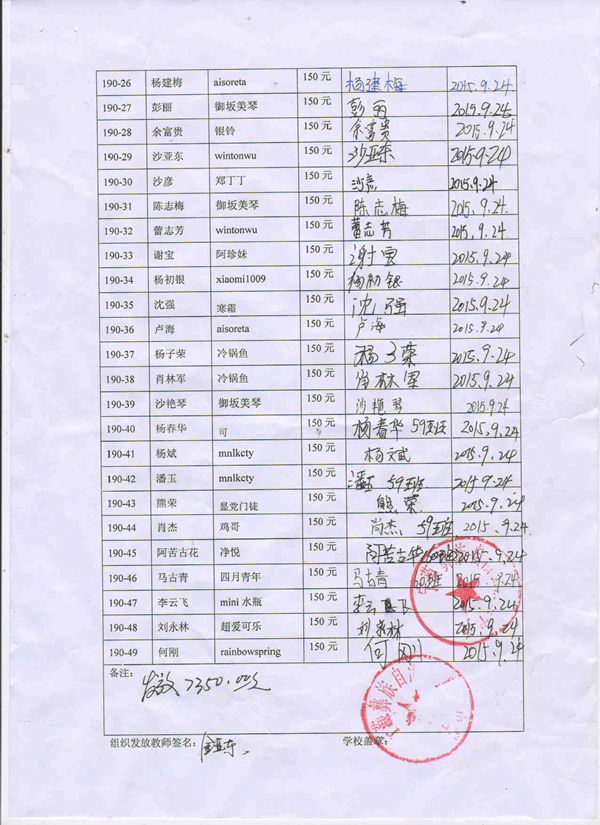 190-26 杨建梅 aisoreta 150 元 杨建梅 2015.9.24
190-27 彭丽 御坂美琴 150 元 彭丽 2015.9.24
190-28 余富贵 银铃 150 元 余富贵 2015.9.24
190-29 沙亚东 wintonwu 150 元 沙亚东 2015.9.24
190-30 沙彦 郑丁丁 150 元 沙彦 2015.9.24
190-31 陈志梅 御坂美琴 150 元 陈志梅 2015.9.24.
190-32 蕾志芳 wintonwu 150 元 蕾志芳 2015.9.24
190-33 谢宝 阿珍妹 150 元 谢宝 2015.9.24
190-34 杨初银 xiaomi1009 150 元 杨初银 2015.9.24
190-35 沈强 寒霜 150 元 沈强 2015.9.24
190-36 卢海 aisoreta 150 元 卢海 2015.9.24
190-37 杨子荣 冷锅鱼 150 元 杨子荣 2015.9.24
190-38 肖林军 冷锅鱼 150 元 肖林军 2015.9.24
190-39 沙艳琴 御坂美琴 150 元 沙艳琴 2015.9.24
190-40 杨春华 可 150 元 杨春华 59班 2015.9.24
190-41 杨斌 mnlkcty 150 元 杨文武 2015.9.24
190-42 潘玉 mnlkcty 150 元 潘玉 59班 2015.9.24
190-43 熊荣 显党门徒 150 元 熊荣 2015.9.24
190-44 肖杰 鸡哥 150 元 肖杰 59班 2015.9.24
190-45 阿苦古花 净悦 150 元 阿苦古华 2015.9.24
190-46 马古青 四月青年 150 元 马古青 2015.9.24
190-47 李云飞 mini 水瓶 150 元 李云飞 2015.9.24
190-48 刘永林 超爱可乐 150 元 刘永林 2015.9.24
190-49 何刚 rainbowspring 150 元 何刚 2015.9.24
备注:
发放7350.00元
组织发放教师签名: 学校盖章:
彝族自